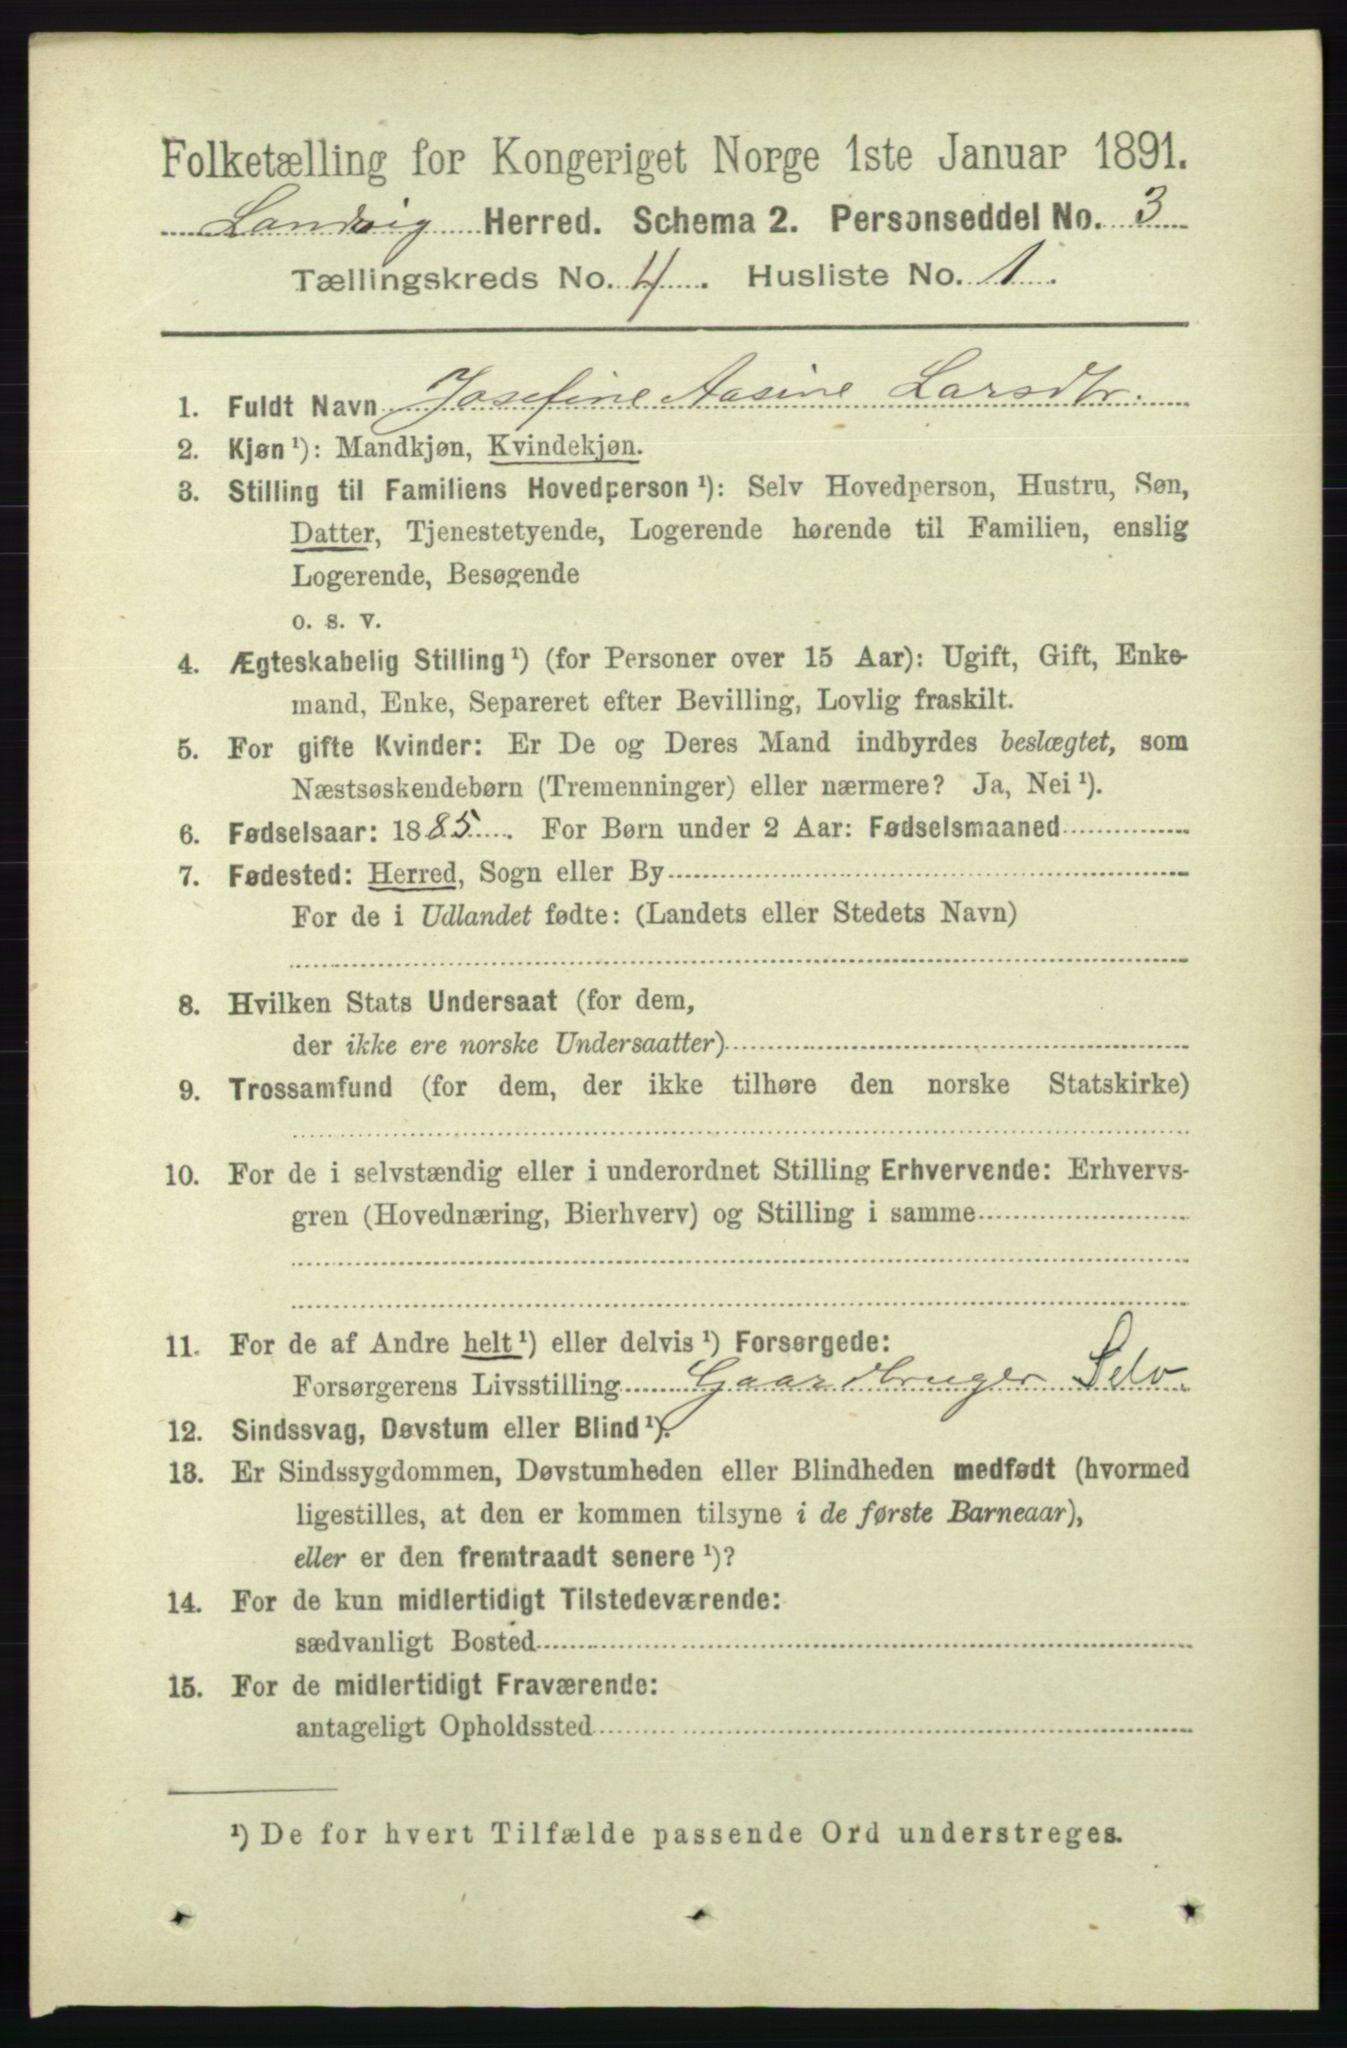 Folketælling for Kongeriget Norge 1ste Januar 1891.
Landvig Herred. Schema 2. Personseddel No. 3
Tællingskreds No. 4. Husliste No. 1.
1. Fuldt Navn Josefine Aasine Larsdtr.
2. Kjøn ¹): Mandkjøn, Kvindekjøn.
3. Stilling til Familiens Hovedperson ¹): Selv Hovedperson, Hustru, Søn,
Datter, Tjenestetyende, Logerende hørende til Familien, enslig
Logerende, Besøgende
o. s. v.
4. Ægteskabelig Stilling ¹) (for Personer over 15 Aar): Ugift, Gift, Enke-
mand, Enke, Separeret efter Bevilling, Lovlig fraskilt.
5. For gifte Kvinder: Er De og Deres Mand indbyrdes beslægtet, som
Næstsøskendebørn (Tremenninger) eller nærmere? Ja, Nei ¹).
6. Fødselsaar: 1885. For Børn under 2 Aar: Fødselsmaaned
7. Fødested: Herred, Sogn eller By
For de i Udlandet fødte: (Landets eller Stedets Navn)
8. Hvilken Stats Undersaat (for dem,
der ikke ere norske Undersaatter)
9. Trossamfund (for dem, der ikke tilhøre den norske Statskirke)
10. For de i selvstændig eller i underordnet Stilling Erhvervende: Erhvervs-
gren (Hovednæring, Bierhverv) og Stilling i samme
11. For de af Andre helt ¹) eller delvis ¹) Forsørgede:
Forsørgerens Livsstilling Gaardbruger Selv
12. Sindssvag, Døvstum eller Blind ¹).
13. Er Sindssygdommen, Døvstumheden eller Blindheden medfødt (hvormed
ligestilles, at den er kommen tilsyne i de første Barneaar),
eller er den fremtraadt senere ¹)?
14. For de kun midlertidigt Tilstedeværende:
sædvanligt Bosted
15. For de midlertidigt Fraværende:
antageligt Opholdssted
¹) De for hvert Tilfælde passende Ord understreges.